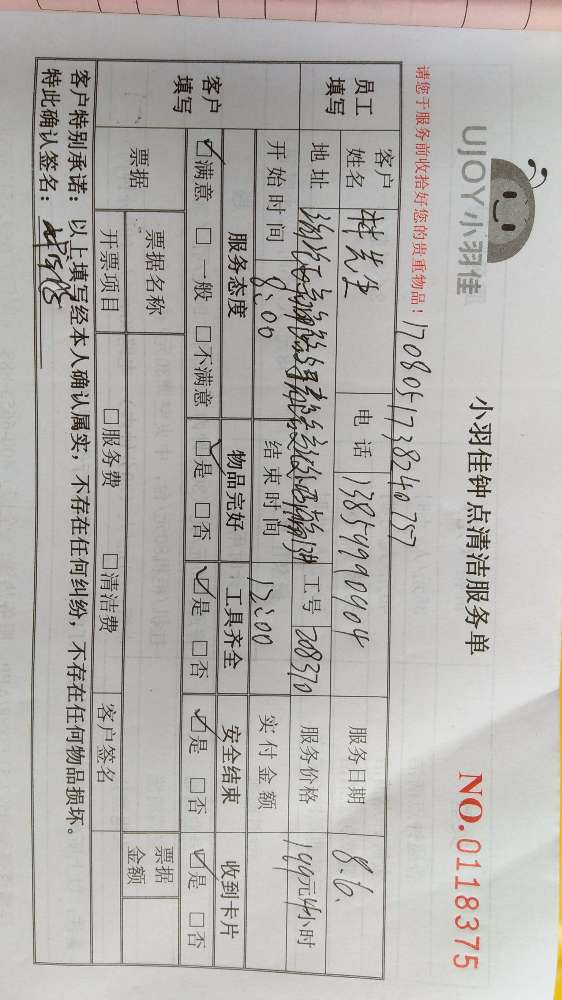 UJOY小羽佳
小羽佳钟点清洁服务单
NO.0118375
请您于服务前收拾好您的贵重物品！
1708051738240757
员工填写
客户姓名 林先生 电话 13859990404 服务日期 8.6.
地址 工号 208370 服务价格 149元4小时
开始时间 8:00 结束时间 12:00 实付金额
客户填写
服务态度 物品完好 工具齐全 安全结束 收到卡片
☑满意 □一般 □不满意 ☑是 □否 ☑是 □否 ☑是 □否 ☑是 □否
票据 票据名称 票据金额
开票项目 □服务费 □清洁费 客户签名
客户特别承诺：以上填写经本人确认属实，不存在任何纠纷，不存在任何物品损坏。
特此确认签名：